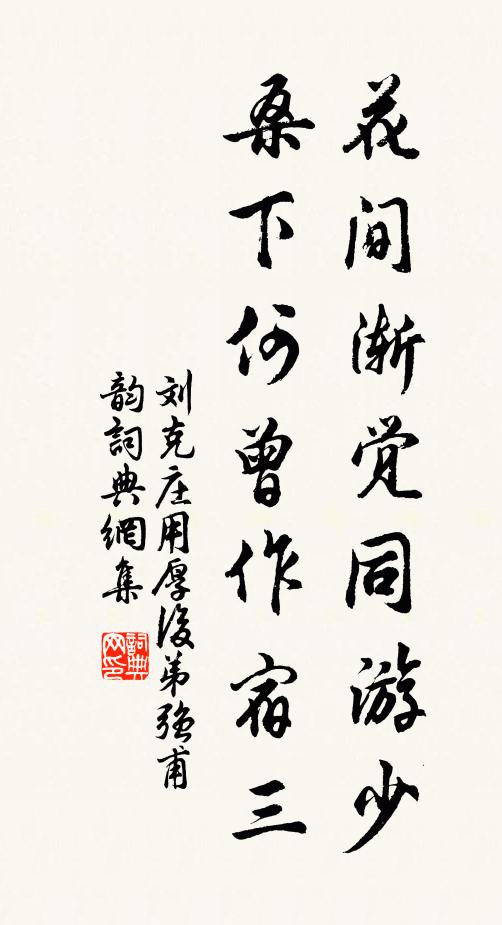 花间渐觉同游少
桑下何曾作宿三
刘克庄用厚后弟强甫
韵词典网集
词典网印